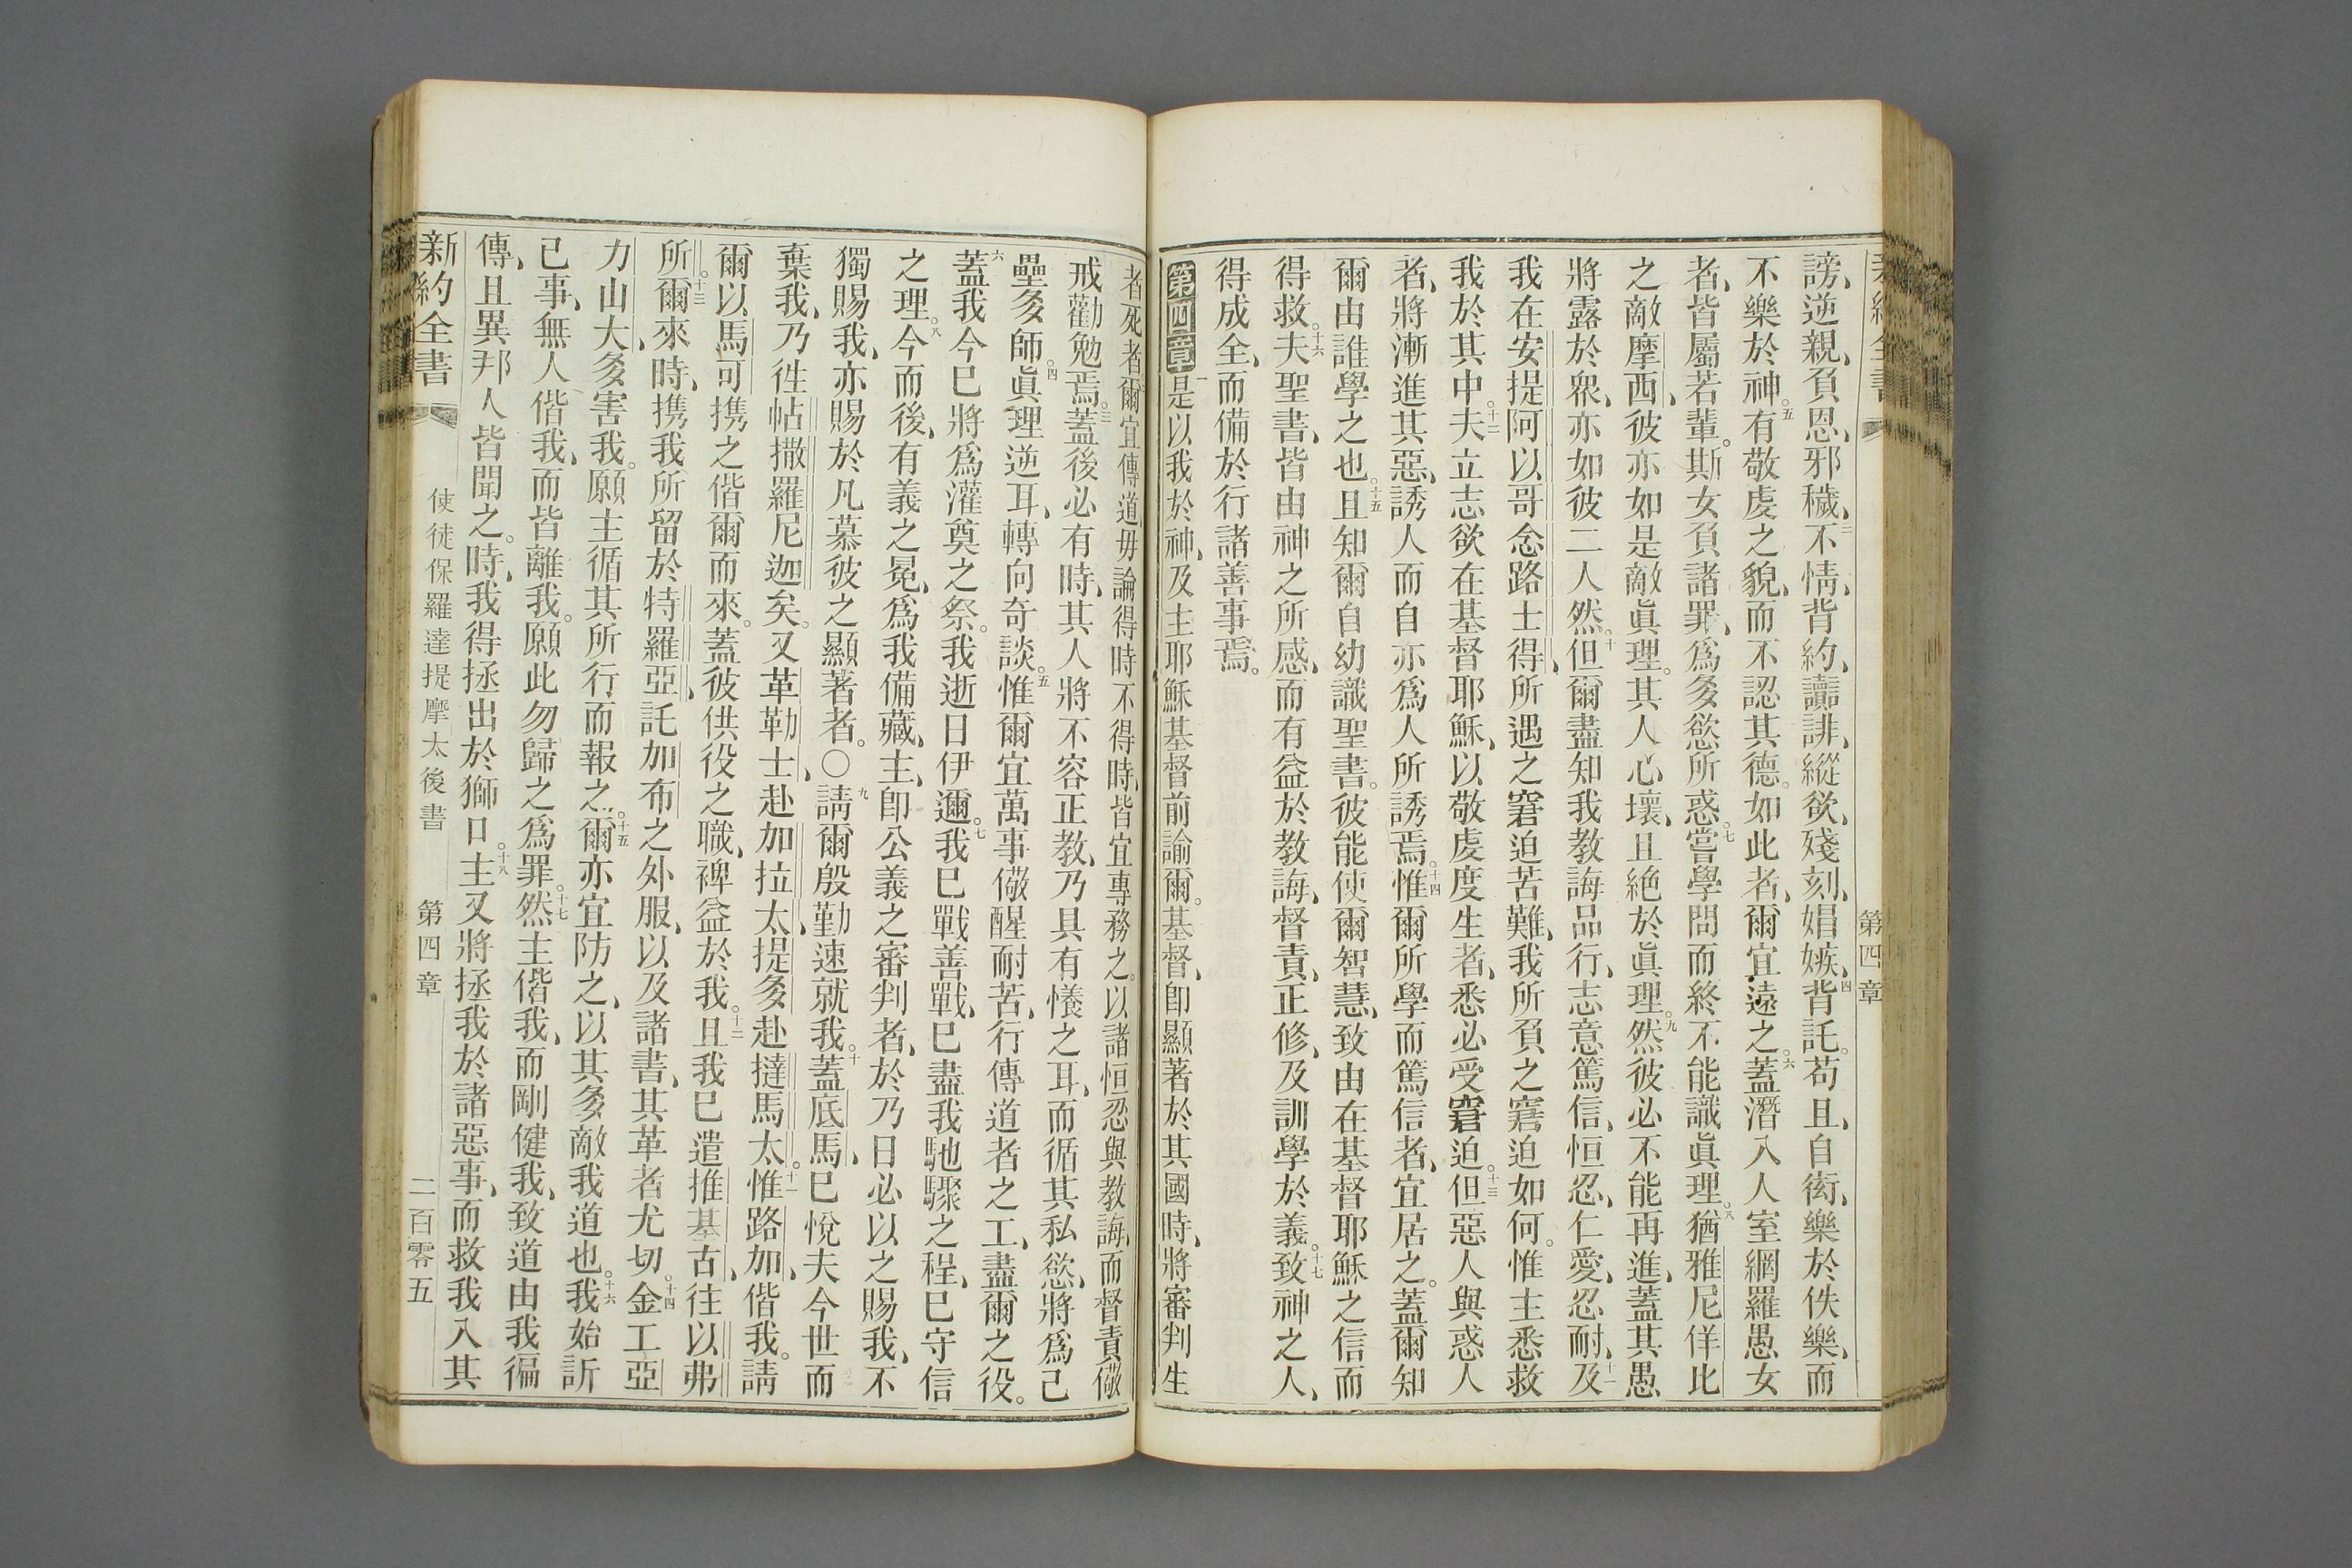 謗、逆親、負恩、邪穢、三不情、背約、讟誹、縱欲、殘刻、娼嫉、四背託。苟且、自衒、樂於佚樂、而
不樂於神。五有敬虔之貌、而不認其德。如此者、爾宜遠之。六蓋潛入人室網羅愚女
者、皆屬若輩。斯女負諸罪、爲多慾所惑。七嘗學問而終不能識眞理。八猶雅尼佯比
之敵摩西、彼亦如是敵眞理。其人心壞、且絕於眞理。九然彼必不能再進、蓋其愚
將露於衆、亦如彼二人然。十但爾盡知我教誨品行、志意篤信、恒忍、仁愛、忍耐、十一及
我在安提阿以哥念路士得、所遇之窘迫苦難、我所負之窘迫如何。惟主悉救
我於其中。十二夫立志欲在基督耶穌、以敬虔度生者、悉必受窘迫。十三但惡人與惑人
者、將漸進其惡、誘人而自亦爲人所誘焉。十四惟爾所學而篤信者、宜居之。蓋爾知
爾由誰學之也。十五且知爾自幼識聖書。彼能使爾智慧、致由在基督耶穌之信而
得救。十六夫聖書、皆由神之所感、而有益於教誨、督責、正修、及訓學於義。十七致神之人、
得成全、而備於行諸善事焉。
第四章一是以我於神、及主耶穌基督前諭爾。基督、即顯著於其國時、將審判生
新約全書
第四章
者死者爾宜傳道毋論得時不得時、皆宜專務之。以諸恒忍與教誨、而督責儆
戒勸勉焉。三蓋後必有時、其人將不容正教、乃具有懩之耳、而循其私慾、將爲己
壘多師。四眞理逆耳、轉向奇談。五惟爾宜萬事儆醒耐苦、行傳道者之工、盡爾之役。
六蓋我今已將爲灌奠之祭。我逝日伊邇。七我已戰善戰、已盡我馳驟之程、已守信
之理。八今而後、有義之冕、爲我備藏、主、卽公義之審判者、於乃日必以之賜我、不
獨賜我、亦賜於凡慕彼之顯著者。〇九請爾殷勤速就我。十蓋底馬、已悅夫今世而
棄我、乃徃帖撒羅尼迦矣。又革勒士、赴加拉太、提多赴撻馬太。十一惟路加、偕我。請
爾以馬可携之偕爾而來。蓋彼供役之職、裨益於我。十二且我已遣推基古、往以弗
所。十三爾來時、携我所留於特羅亞、託加布之外服、以及諸書、其革者尤切。十四金工亞
力山大、多害我。願主循其所行而報之。十五爾亦宜防之、以其多敵我道也。十六我始訢
己事、無人偕我、而皆離我。願此勿歸之爲罪。十七然主偕我、而剛健我、致道由我徧
傳、且異邦人皆聞之。時、我得拯出於獅口。十八主又將拯我於諸惡事、而救我入其
新約全書
使徒保羅達提摩太後書
第四章
二百零五